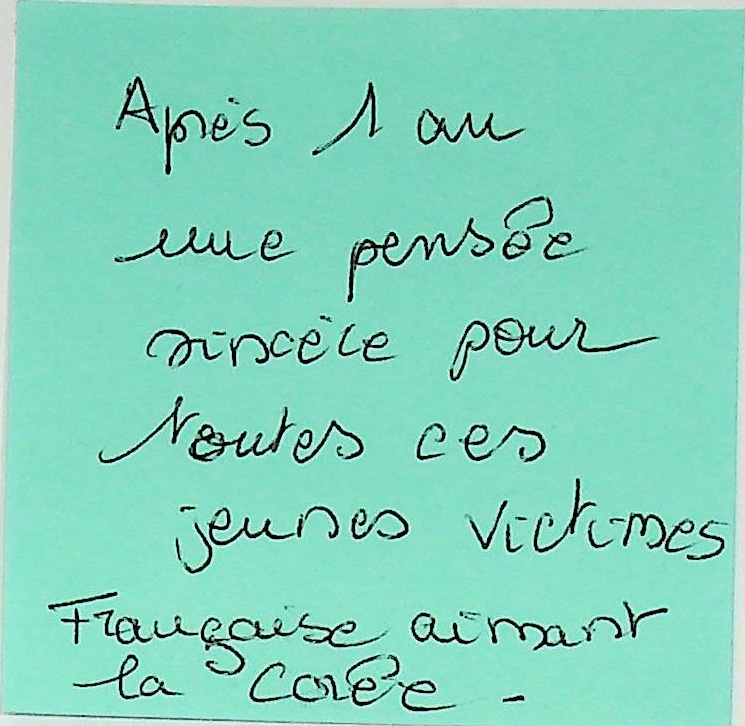 Après 1 an
une pensée
sincère pour
toutes ces
jeunes victimes
Française aimant
la Corée -